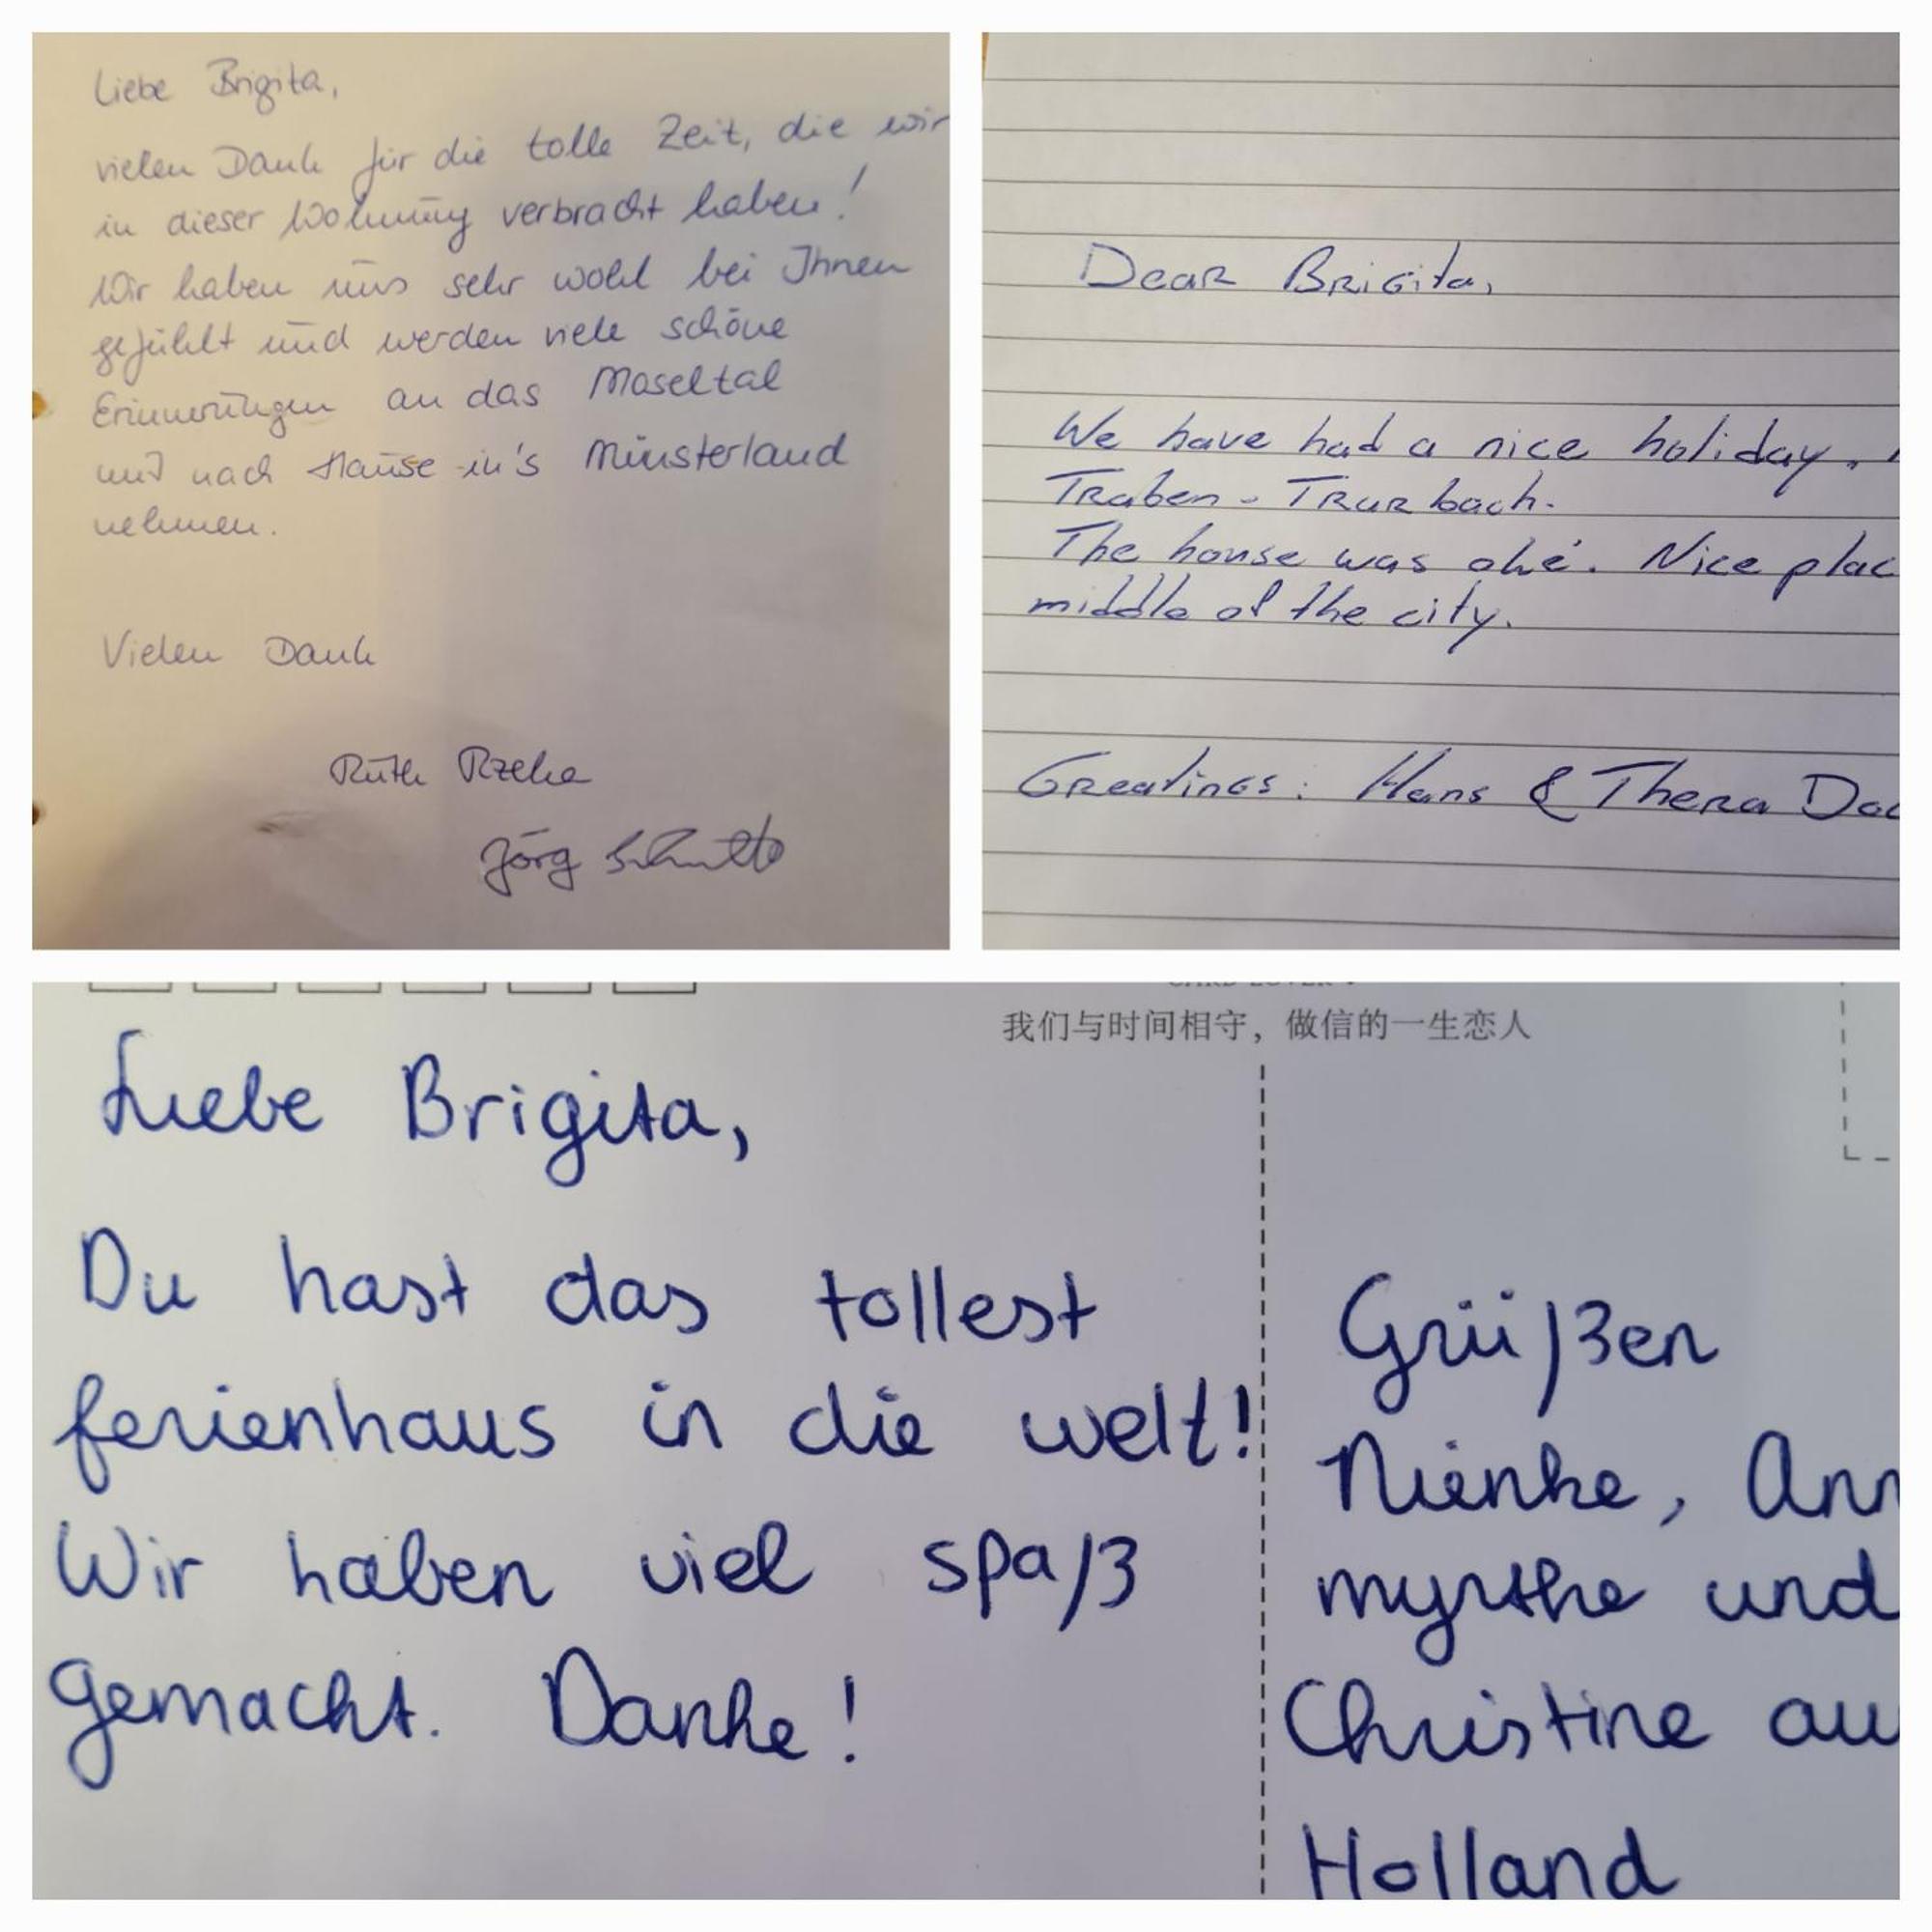 Liebe Brigita,
vielen Dank für die tolle Zeit, die wir
in dieser Wohnung verbracht haben!
Wir haben uns sehr wohl bei Ihnen
gefühlt und werden viele schöne
Erinnerungen an das Moseltal
mit nach Hause in's Münsterland
nehmen.
Vielen Dank
Ruth
Jörg
Dear Brigita,
We have had a nice holiday.
Traben - Trarbach.
The house was oké. Nice plac
middle of the city.
Greatings: Hans & Thera
我们与时间相守，做信的一生恋人
Liebe Brigita,
Du hast das tollest
ferienhaus in die welt!
Wir haben viel spaß
gemacht. Danke!
Grüßen
Nienke, Ann
myrthe und
Christine au
Holland